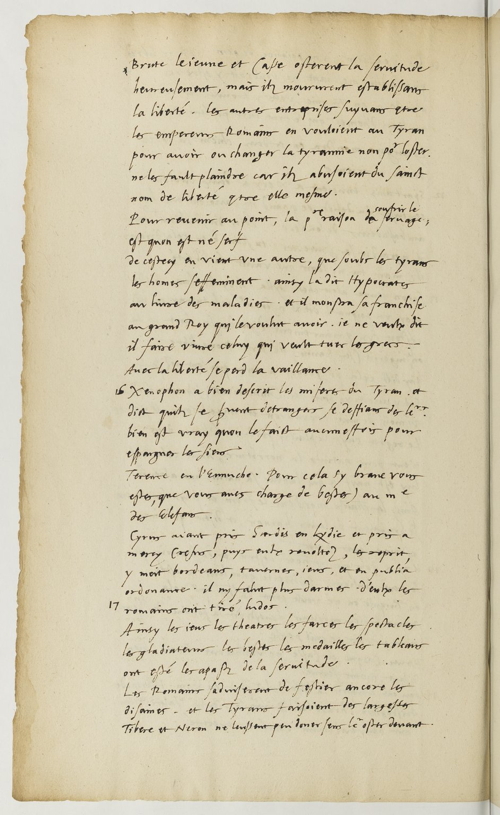 Brute le ieune et Casse osterent la servitude
heureusement, mais ilz moururent establissans
la liberté. les autres entreprises suyvans cotre
les empereurs Romains en vouloient au Tyran
pour avoir ou changer la tyrannie non po^r l'oster.
ne les fault plaindre car ilz abusoient du sainct
nom de liberté cotre elle mesme.
Pour revenir au point, la p^re raison de souffrir le servage,
est quon est né serf
de cestecy en vient une autre, que soubs les tyrans
les homes s'effeminent. ainsy la dit Hypocrates
au livre des maladies. et il monstra sa franchise
au grand Roy qui le voulut avoir. ie ne veulx dit
il faire vivre celuy qui veult tuer les grecs.
Avec la liberté se perd la vaillance.
16 Xenophon a bien descrit les miseres du Tyran. et
dict quilz se servent d'etrangers se deffians des le^rs.
bien est vray quon le faict aucuneffois pour
espargner les siens
Terence en l'Eunucho. Pour cela sy brave vous
estes, que vous aves charge de bestes) au m^e
des Elefans.
Cyrus aiant pris Sardis en Lydie et pris a
mercy Cresus, puys eulx revoltez, les reprit,
y meit bordeaux, tavernes, ieux, et en publia
ordonance. il ny falut plus darmes. d'eulx les
17 romains ont tiré ludos.
Ainsy les ieux les theatres les farces les spectacles
les gladiateurs les bestes les medailles les tableaux
ont esté les apastz de la servitude.
Les Romains s'adviserent de festier ancore les
dizaines. et les Tyrans faisoient des largesses
Tibere et Neron ne leussent peu doner sens le oster devant.